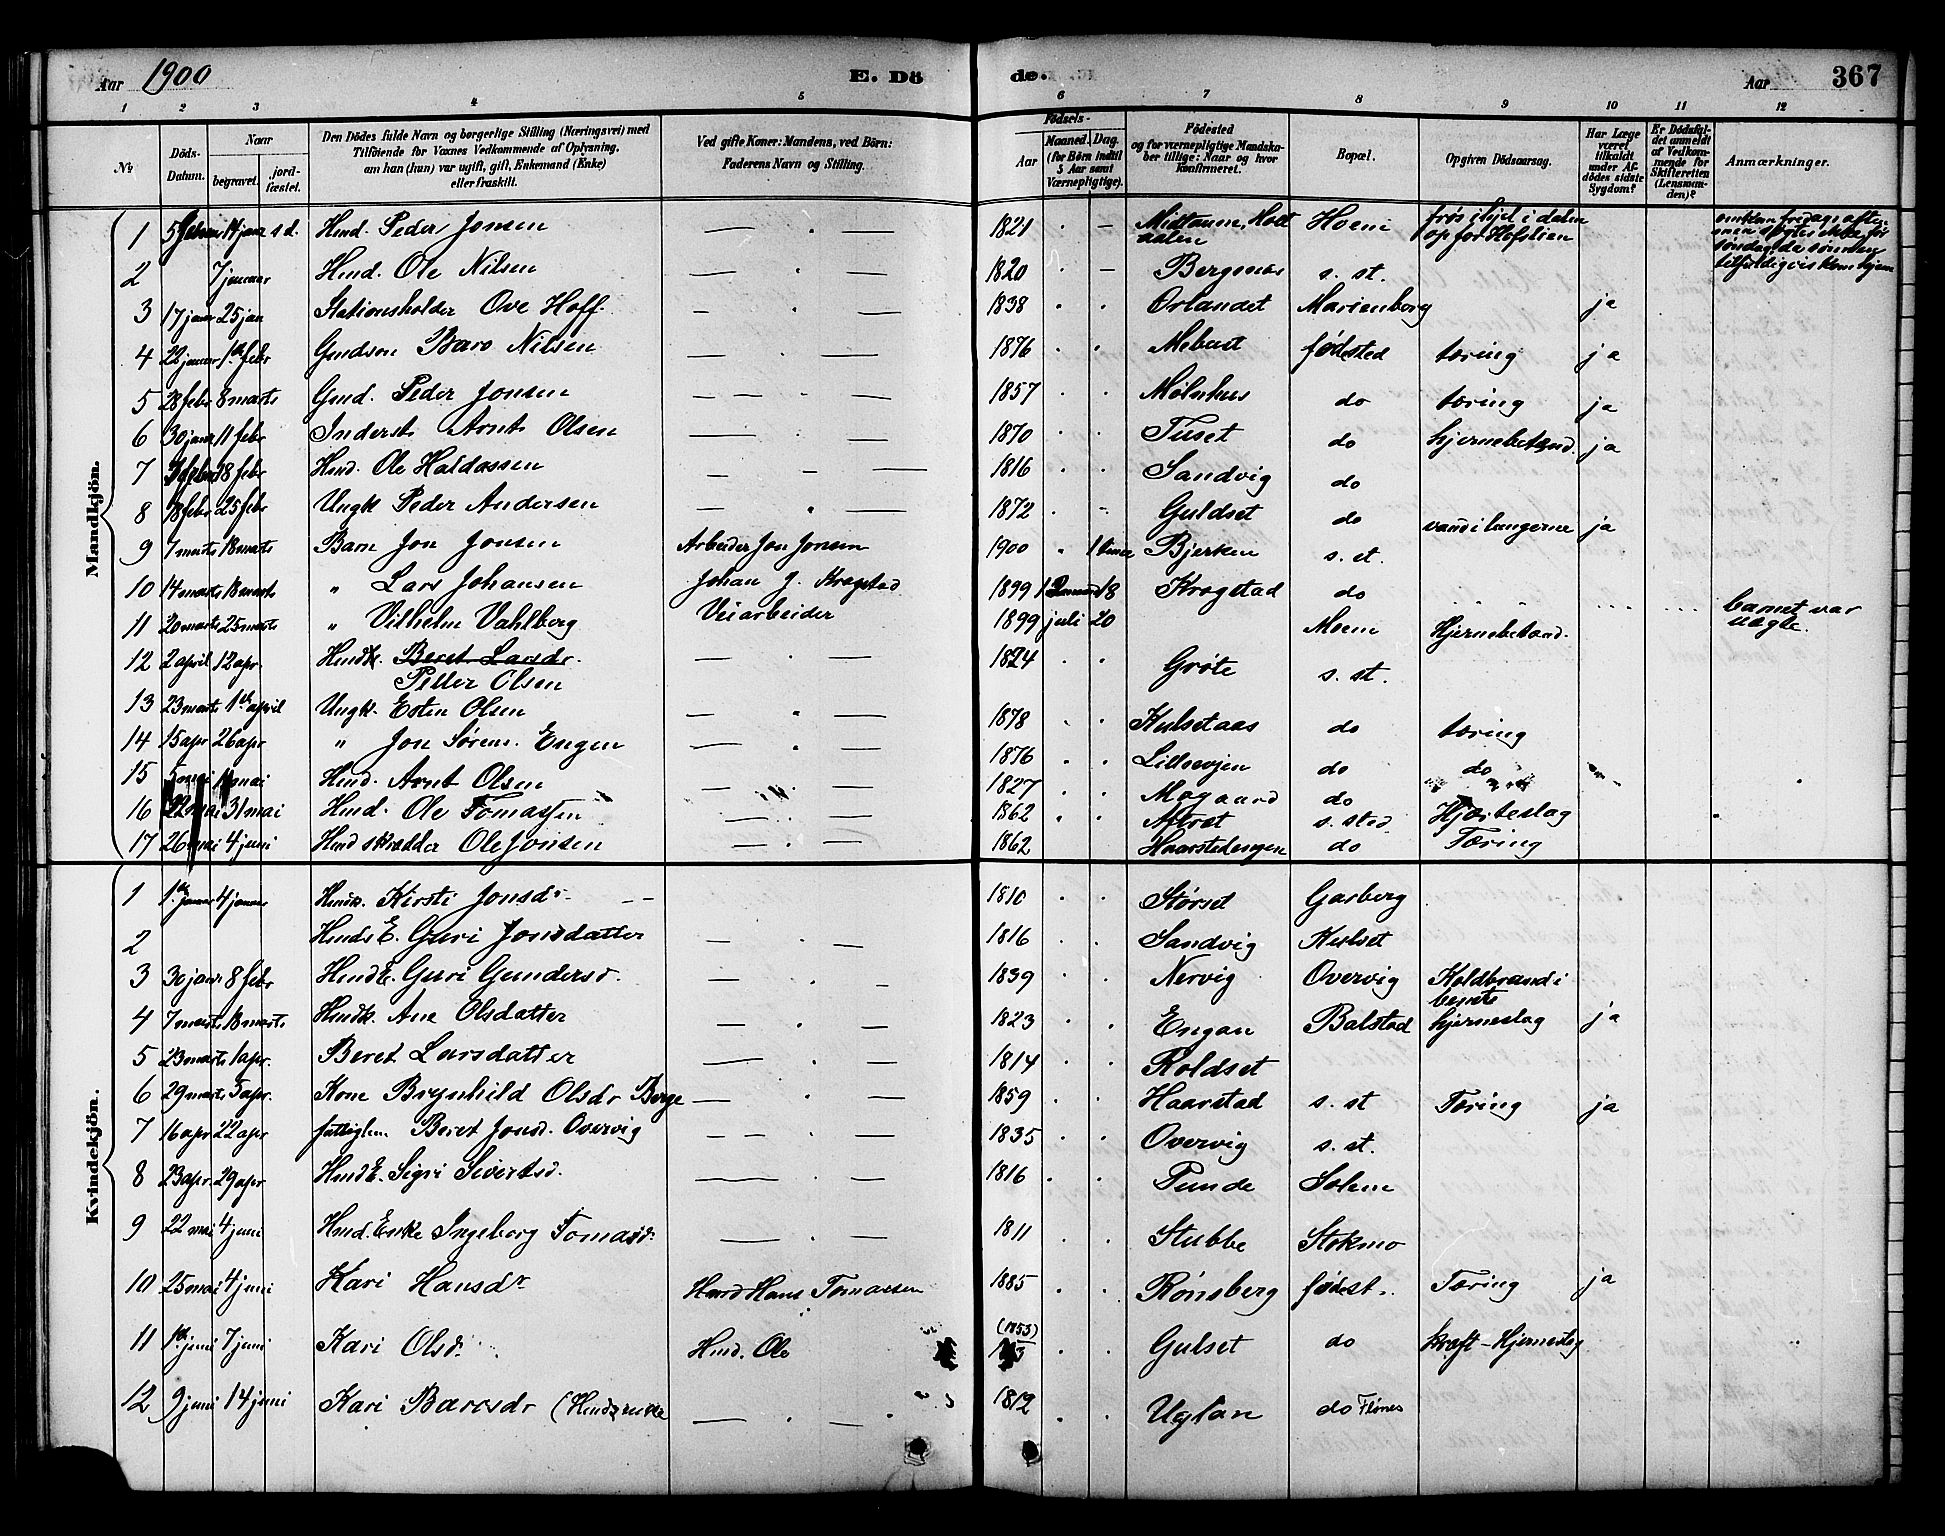 Aar 1900 E. Döde. Aar 367
1 2 3 4 5 6 7 8 9 10 11 12
Nr.
Döds-Datum.
Naar
begravet.
jord-fæstet.
Den Dödes fulde Navn og borgerlige Stilling (Næringsvei) med
Tilföiende for Voxnes Vedkommende af Oplysning,
om han (hun) var ugift, gift, Enkemand (Enke)
eller fraskilt.
Ved gifte Koner: Mandens, ved Börn:
Faderens Navn og Stilling.
Födsels-
Aar
Maaned. Dag.
(for Börn indtil
5 Aar samt
Værnepligtige).
Födested
og for værnepligtige Mandska-
ber tillige: Naar og hvor
konfirmeret.
Bopæl.
Opgiven Dödsaarsag.
Har Læge
været
tilkaldt
under Af-
dödes sidste
Sygdom?
Er Dödsfal-
det anmeldt
af Vedkom-
mende for
Skifteretten
(Lensman-
den)?
Anmærkninger.
Mandkjön.
1 5 14 janr s.d. Hmd. Peder Jonsen — . — 1821 . — Midtaune, Holtaalen Hoem frøs ihjel i dalen op for Hofslien
2 7 januar Hmd. Ole Nilsen — . — 1820 . — Bergsmo s. st.
3 17 janr 25 jan Stationsholder Ove Hoff. — . — 1838 . . Ørlandet Marienborg ja
4 22 januar 1ste febr Gmdsøn Baro Nilsen — . — 1876 . . Mebust fødested tæring ja
5 28 febr 8 marts Gmd. Peder Jonsen — — — 1857 . . Mølnhus do tæring ja
6 30 janr 11 febr Inderst Arnt Olsen — . — 1870 . . Tuset do hjernebetænd. ja
7 18 febr Hmd. Ole Haldossen — . — 1816 . . Sandvig do
8 18 febr 25 febr Ungk Peder Andersen — . — 1872 . - Guldset do vand i lungerne ja
9 7 marts 18 marts Barn Jon Jonsen Arbeider Jon Jonsen 1900 " 1 time Bjerken s. st.
10 14 marts 18 marts " Lars Johansen Johan J. Krogstad 1899 18 Krogstad do
11 20 marts 25 marts " Vilhelm Vahlberg Veiarbeider 1899 juli 20 Moem Hjernebetænd. barnet var uægte.
12 2 april 12 apr. Hmdk. Beret Larsdr. Peller Olsen — . — 1824 . . Grøte s. st.
13 23 marts 1ste april Ungk. Esten Olsen — . — 1878 . . Kulsetaas do tæring
14 15 apr 26 apr " Jon Sørens. Engen — . — 1876 . . Lillevojen do do
15 5 mai mai Hmd. Arnt Olsen — . — 1827 . . Mogaard do
16 22 mai 31 mai Hmd. Ole Tomassen — . — 1862 . . Aftret s. sted Hjærteslag
17 26 mai 4 juni Hmd skrædder Ole Jonsen — . — 1862 Haarstadengen do Tæring
Kvindekjön.
1 1ste januar 4 januar Hmdk. Kirsti Jonsdr — — 1810 . . Størset Garberg
2 HmdsE. Guri Jonsdatter — . — 1816 . . Sandvig Kulset
3 30 janr 8 febr HmdE. Guri Gundersd. — . — 1839 . . Nervig Overvig Koldbrand i benet
4 7 marts 18 marts Hmdk. Ane Olsdatter — . — 1823 . . Engan Balstad hjerneslag ja
5 23 marts 1 apr. Beret Larsdatter — . — 1814 . . Roldset
6 29 marts 5 apr. Kone Brynhild Olsdr Berge — . — 1859 . . Haarstad s. st Tæring ja
7 16 apr 22 apr fattiglem Beret Jonsd. Overvig — — — 1835 . . Overvig s. st.
8 23 apr. 29 apr HmdE. Sigri Sivertsd. — . — 1816 . . Tunde Solem
9 22 mai 4 juni Hmd. Enke Ingeborg Tomasd. — . — 1811 . . Stubbe Stokmo
10 25 mai 4 juni Kari Hansdr Hmd Hans Tomassen 1885 . . Rønsberg fødest.. Tæring ja
11 1ste juni 7 juni Kari Olsdr. Hmd. Ole (1853) . . Gulset do kræft - Hjerneslag
12 9 juni 14 juni Kari Baroesdr (Hmdsenke — . — 1812 . . Uglan do Flønes